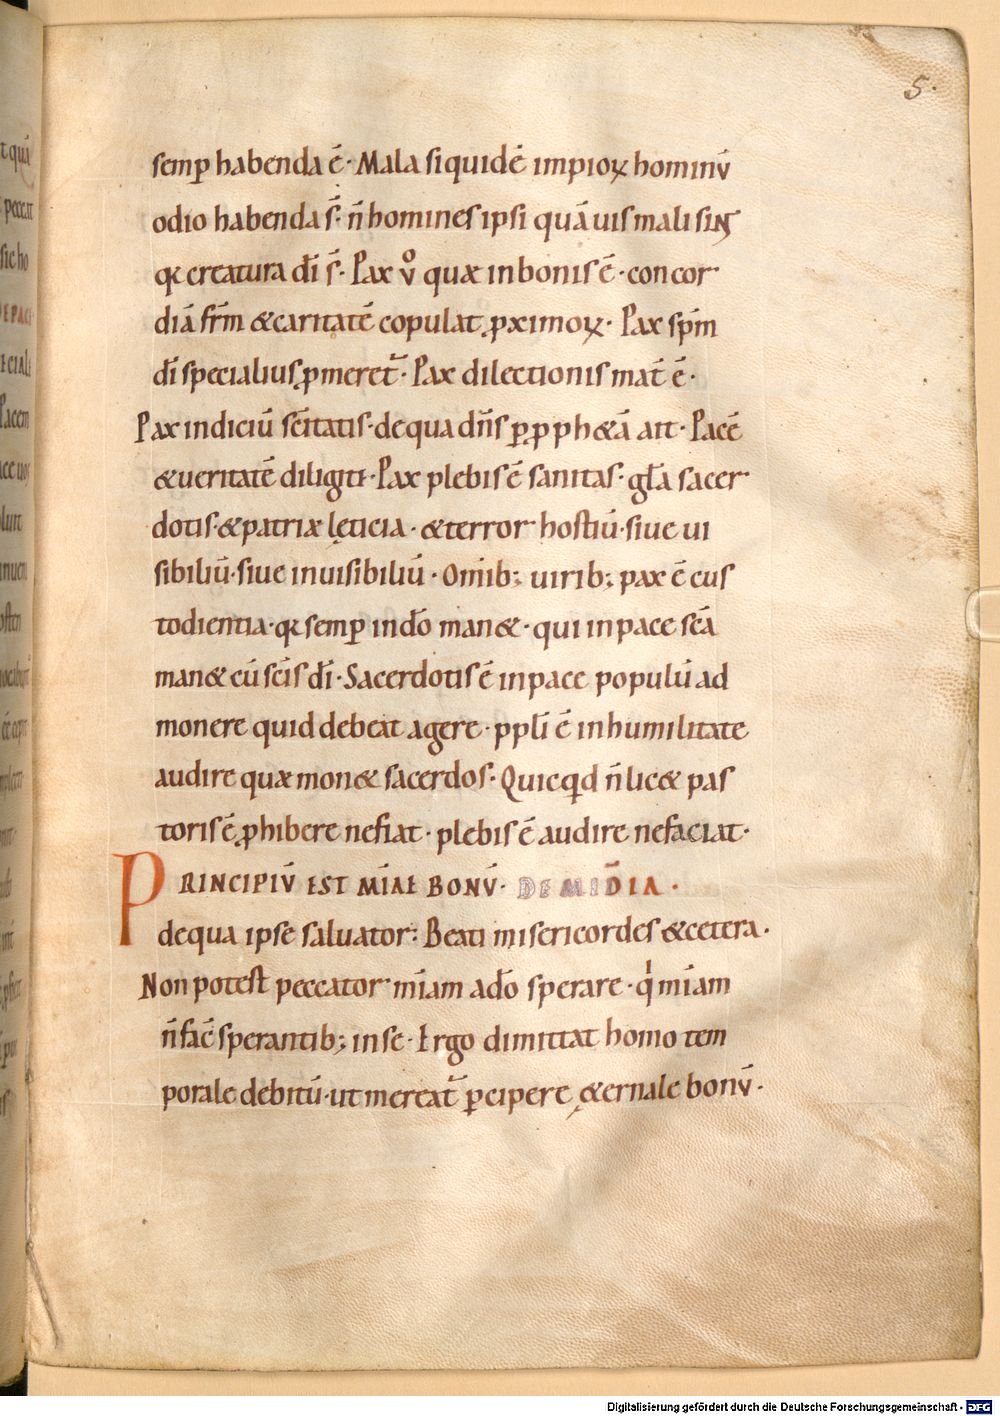 5.
semp̄ habenda ē· Mala siquidē impioꝝ hominū
odio habenda s̄· n̄ homines ipsi quāuis mali sint
qꝛ creatura dī s̄· Pax v̊ quæ in bonis ē· concor
diā frm̄ &caritatē copulat ꝓximoꝝ· Pax spm̄
dī specialius ꝓmeret᷑· Pax dilectionis mat̄ ē·
Pax indiciū sc̄itatis· de qua dn̄s ꝑ ꝓph&ā ait· Pacē
&ueritatē diligiti· Pax plebis ē sanitas· gl̄a sacer
dotis· &patriæ lęticia· &terror hostiū· siue ui
sibiliū· siue inuisibiliū· Om̄ib; uirib; pax ē cus
todientia· qꝛ semꝑ in dō man&· qui in pace sc̄a
man& cū sc̄is dī· Sacerdotis ē in pace populū ad
monere quid debeat agere· ppl̄i ē in humilitate
audire quæ mon& sacerdos· Quicqd n̄ lic& pas
toris ē ꝓhibere ne fiat· plebis ē audire ne faciat·
PRINCIPIŪ EST MĪAE BONŪ· DE MĪDIA·
de qua ipse saluator· Beati misericordes &cetera·
Non potest peccator mīam adō sperare· qi mīam
n̄ fac̄ sperantib; in se· Ergo dimittat homo tem
porale debitū· ut mereat᷑ ꝑcipere &ernale bonū·
Digitalisierung gefördert durch die Deutsche Forschungsgemeinschaft - DFG